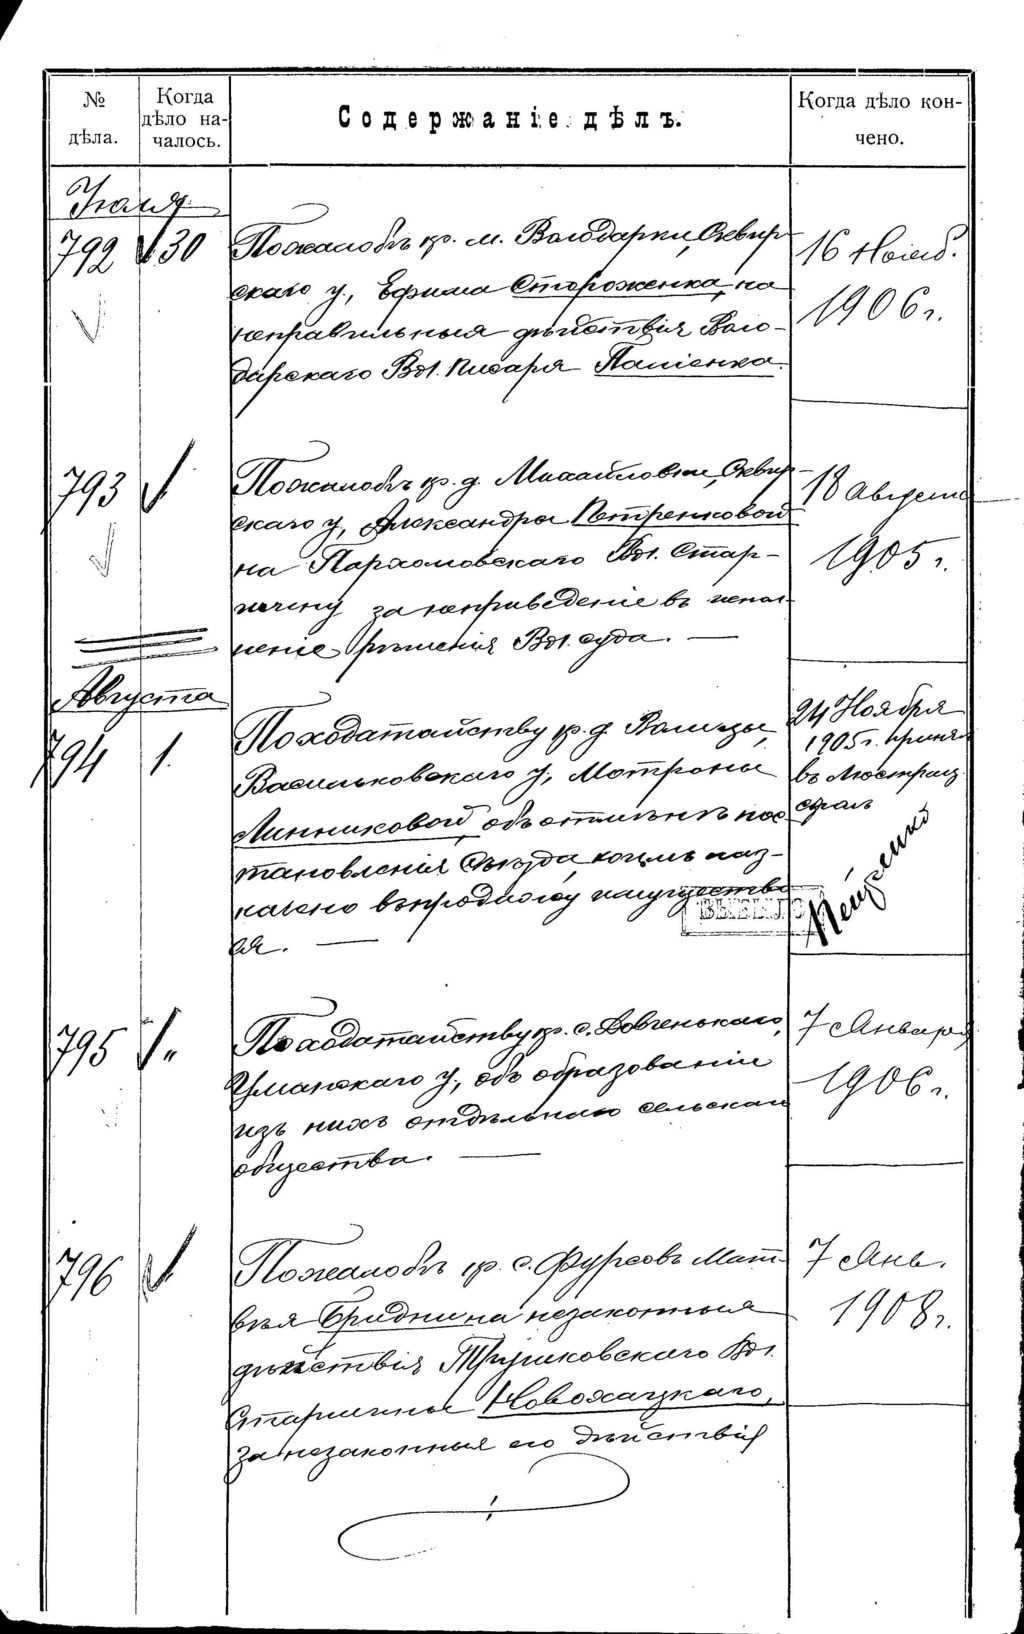 № дѣла.
Когда дѣло на-
чалось.
Содержаніе дѣлъ.
Когда дѣло кон-
чено.
Іюля
792 30
По жалобѣ кр. м. Володарки, Сквир-
скаго у., Ефима Стороженка, на
неправильныя дѣйствія Воло-
дарскаго Вол. писаря Папіенка.
16 Нояб.
1906 г.
793
По жалобѣ кр. д. Михайловки, Сквир-
скаго у., Александры Петренковой
на Пархомовскаго Вол. Стар-
шину за неприведеніе въ испол-
неніе рѣшенія Вол. суда.
18 Августа
1905 г.
Августа
794 1.
По ходатайству кр. д.
Васильковскаго у., Мотроны
Линниковой, объ отмѣнѣ пос-
тановленія Съѣзда, коимъ наз-
начено въ продажу имущество
ея.
24 Ноября
1905 г.
въ
795 "
По ходатайству кр. с. Довгенькаго,
Уманскаго у., объ образованіи
изъ нихъ отдѣльнаго сельскаго
общества.
7 Января
1906 г.
796
По жалобѣ кр. с. Фурсовъ Мат-
вѣя Бридни на незаконныя
дѣйствія Трушковскаго Вол.
Старшины Новохацкаго,
за незаконныя его дѣйствія
7 Янв.
1908 г.